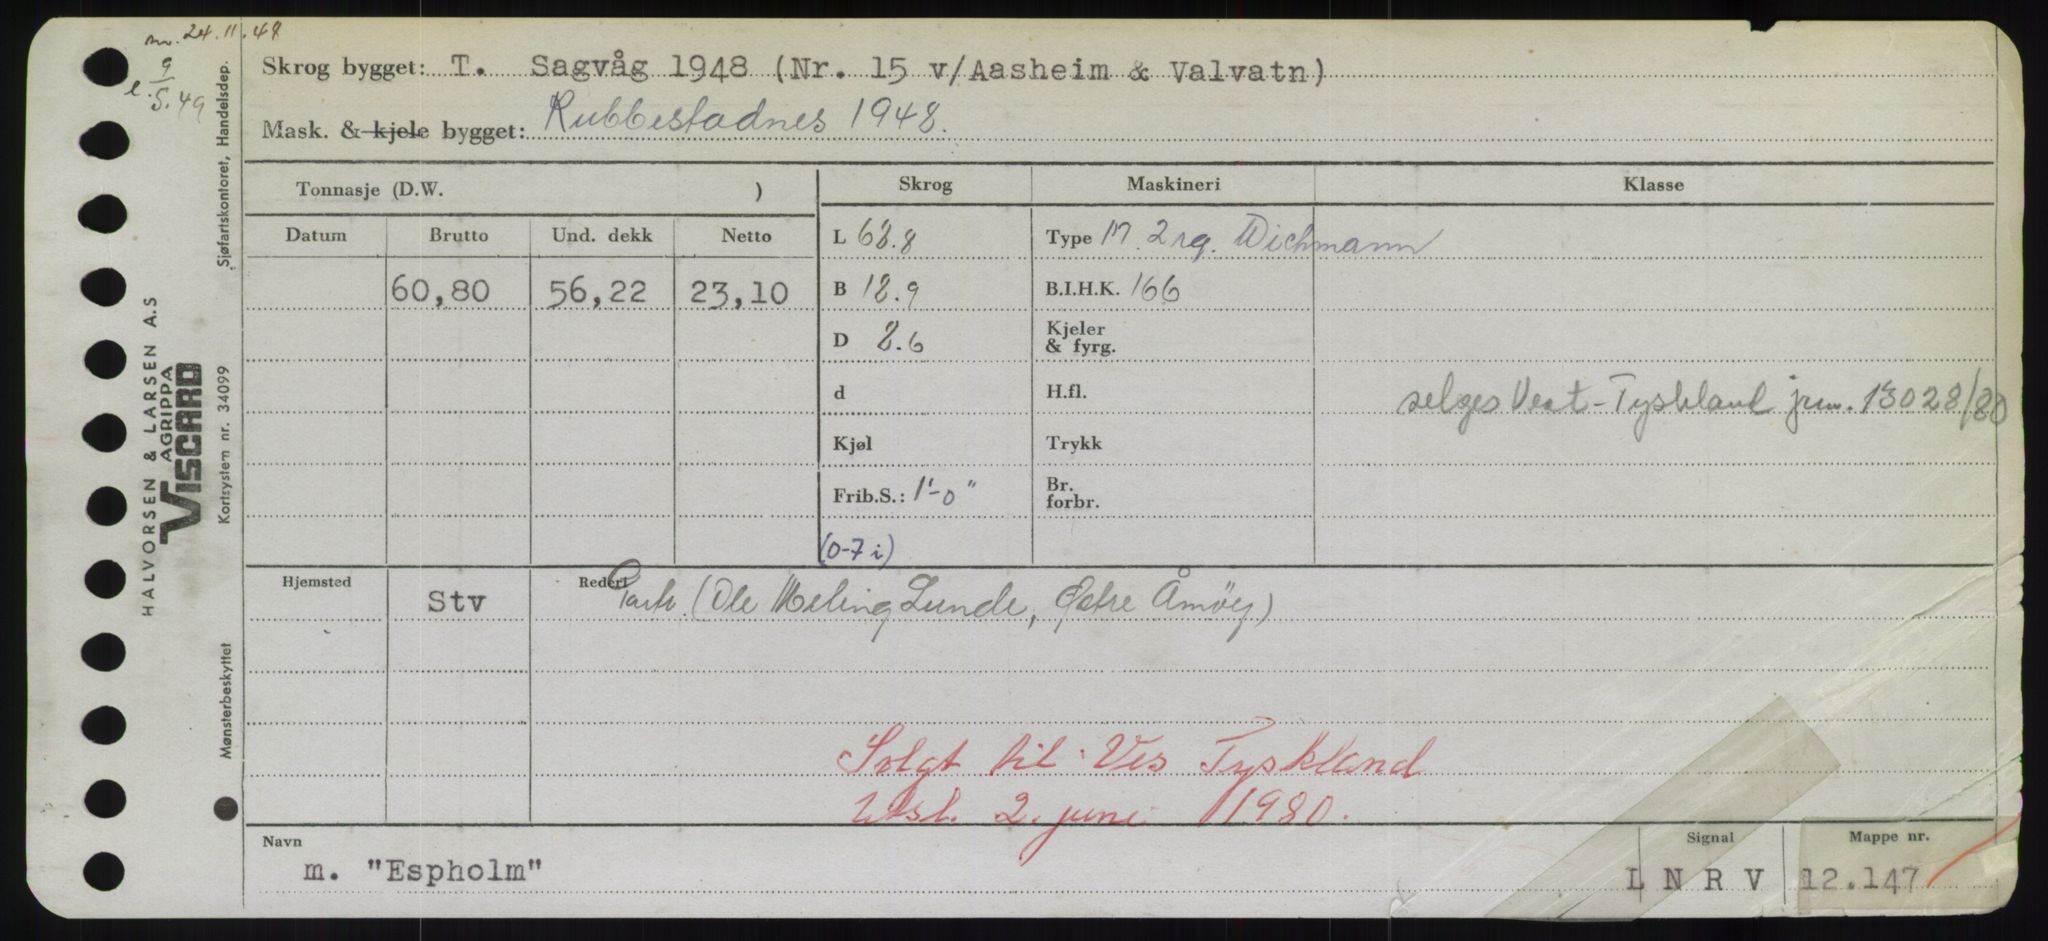 24.11.48
9/5.49
Skrog bygget: T. Sagvåg 1948 (Nr. 15 v/Aasheim & Valvatn)
Mask. & kjele bygget: Rubbestadnes 1948.
Tonnasje (D.W. )
Skrog
Maskineri
Klasse
Datum
Brutto
Und. dekk
Netto
60,80
56,22
23,10
L 68.8
B 18.9
D 8.6
d
Kjøl
Frib.S.: 1'-0"
(0-7 i)
Type M. 2 rg. Wichmann
B.I.H.K. 166
Kjeler
& fyrg.
H.fl.
Trykk
Br.
forbr.
selges Vest-Tyskland jrn. 13028/80
Hjemsted
Stv
Rederi
Partr. (Ole Meling Lunde, Østre Åmöy)
Solgt til Ves Tyskland
Utsl. 2. juni 1980.
Navn
m. "Espholm"
Signal
L N R V
Mappe nr.
12.147
HALVORSEN & LARSEN A.S
AGRIPPA
VISCARD
Sjøfartskontoret, Handelsdep.
Kortsystem nr. 34099
Mønsterbeskyttet